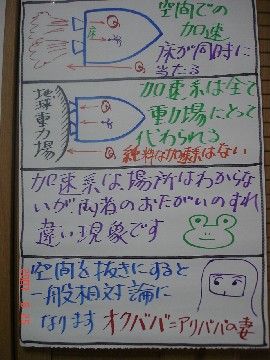 空間での
加速
床が同時に
当たる
床
加速系は全て
重力場にとって
代わられる
純粋な加速系はない
地球重力場
加速系は場所はわからな
いが両者のおたがいのすれ
違い現象です
空間を抜きにすると
一般相対論に
なります オクババ=アリババの妻